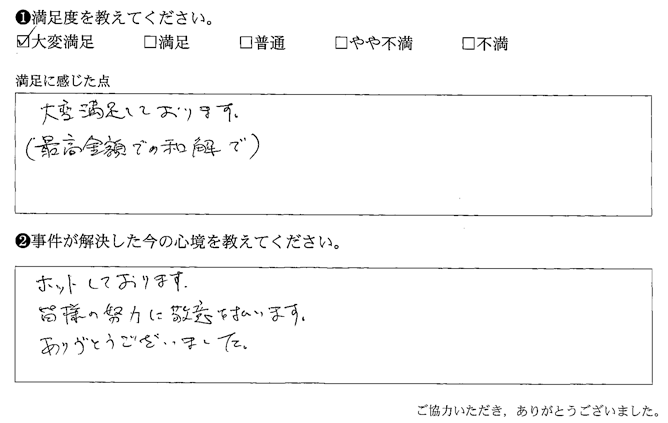 ❶満足度を教えてください。
☑大変満足 □満足 □普通 □やや不満 □不満
満足に感じた点
大変満足しております。
(最高金額での和解で)
❷事件が解決した今の心境を教えてください。
ホットしております.
皆様の努力に敬意を払います。
ありがとうございました。
ご協力いただき，ありがとうございました。